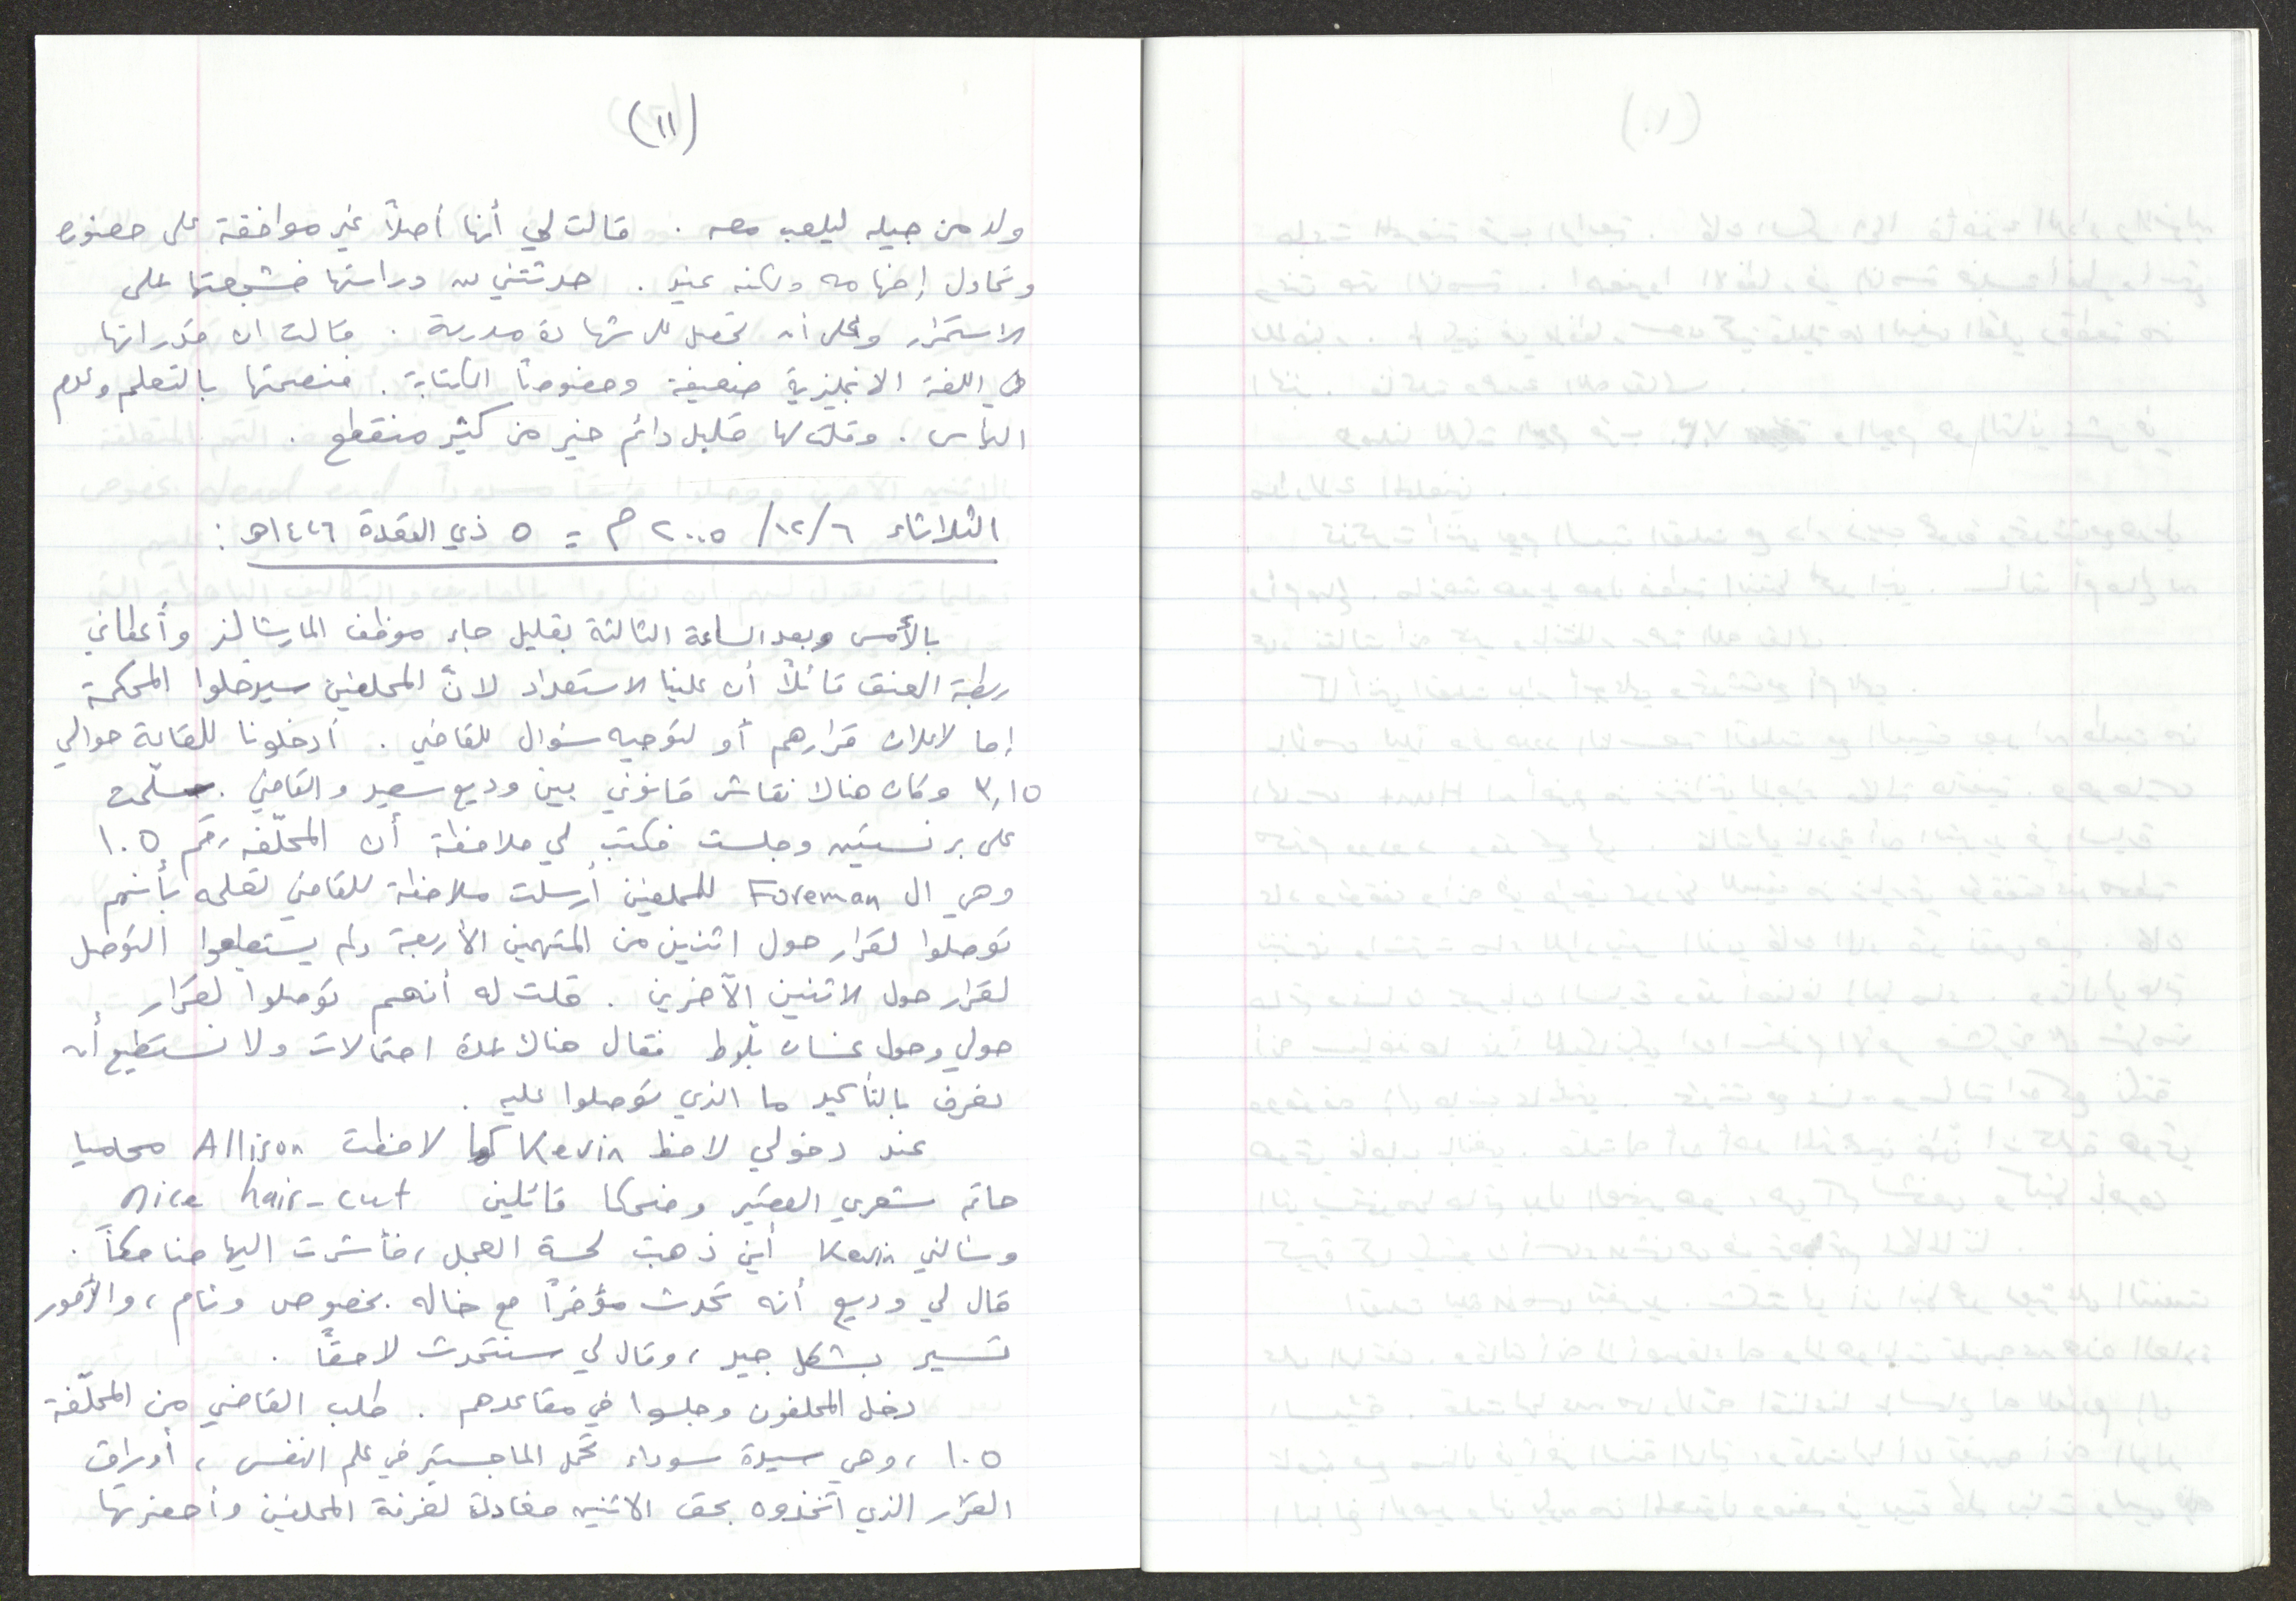 (١١)
ولد من جيله ليلعب معه . قالت لي أنها أصلاً غير موافقة على حضوره
وتحاول إفهامه ولكنه عنيد . حدثتني عن دراستها فشجعتها على
الاستمرار وعلى أن تحصل على شهادة مدرسة . قالت ان قدراتها
في اللغة الانجليزية ضعيفة وخصوصاً الكتابة . فنصحتها بالتعلم وعدم
اليأس . وقلت لها قليل دائم خير من كثير منقطع .
الثلاثاء ٦/١٢/٢٠٠٥م = ٥ ذي القعدة ١٤٢٦هـ :
بالأمس وبعد الساعة الثالثة بقليل جاء موظف المارشالز وأعطاني
ربطة العنق قائلاً أن علينا الاستعداد لانّ المحلفين سيدخلوا المحكمة
إما لاعلان قرارهم أو لتوجيه سؤال للقاضي . أدخلونا للقاعة حوالي
٣,١٥ وكان هنالا نقاش قانوني بين وديع سعيد والقاضي . سلّمت
على برنستين وجلست فكتب لي ملاحظة أن المحلّفه رقم ١٠٥
وهي ال Foreman للمحلفين أرسلت ملاحظة للقاضي تعلمه بأنهم
توصلوا لقرار حول اثنين من المتهمين الأربعة ولم يستطيعوا التوصل
لقرار حول الاثنين الآخرين . قلت له أنهم توصلوا لقرار
حولي وحول غسان بلّوط فقال هنالا عدة احتمالات ولا نستطيع أن
نعرف بالتأكيد ما الذي توصلوا عليه .
عند دخولي لاحظ Kevin كما لاحظت Allison محاميا
حاتم شعري القصير وضحكا قائلين nice hair-cut
وسألني Kevin أين ذهبت لحسة العجل ، فأشرت اليها ضاحكاً .
قال لي وديع أنه تحدث مؤخراً مع خاله بخصوص وئام ، والأمور
تسير بشكل جيد ، وقال لي سنتحدث لاحقاً .
دخل المحلفون وجلسوا في مقاعدهم . طلب القاضي من المحلّفة
١٠٥ ، وهي سيدة سوداء تحمل الماجستير في علم النفس ، أوراق
القرار الذي اتخذوه بحق الاثنين مغادرة لغرفة المحلفين وأحضرتها